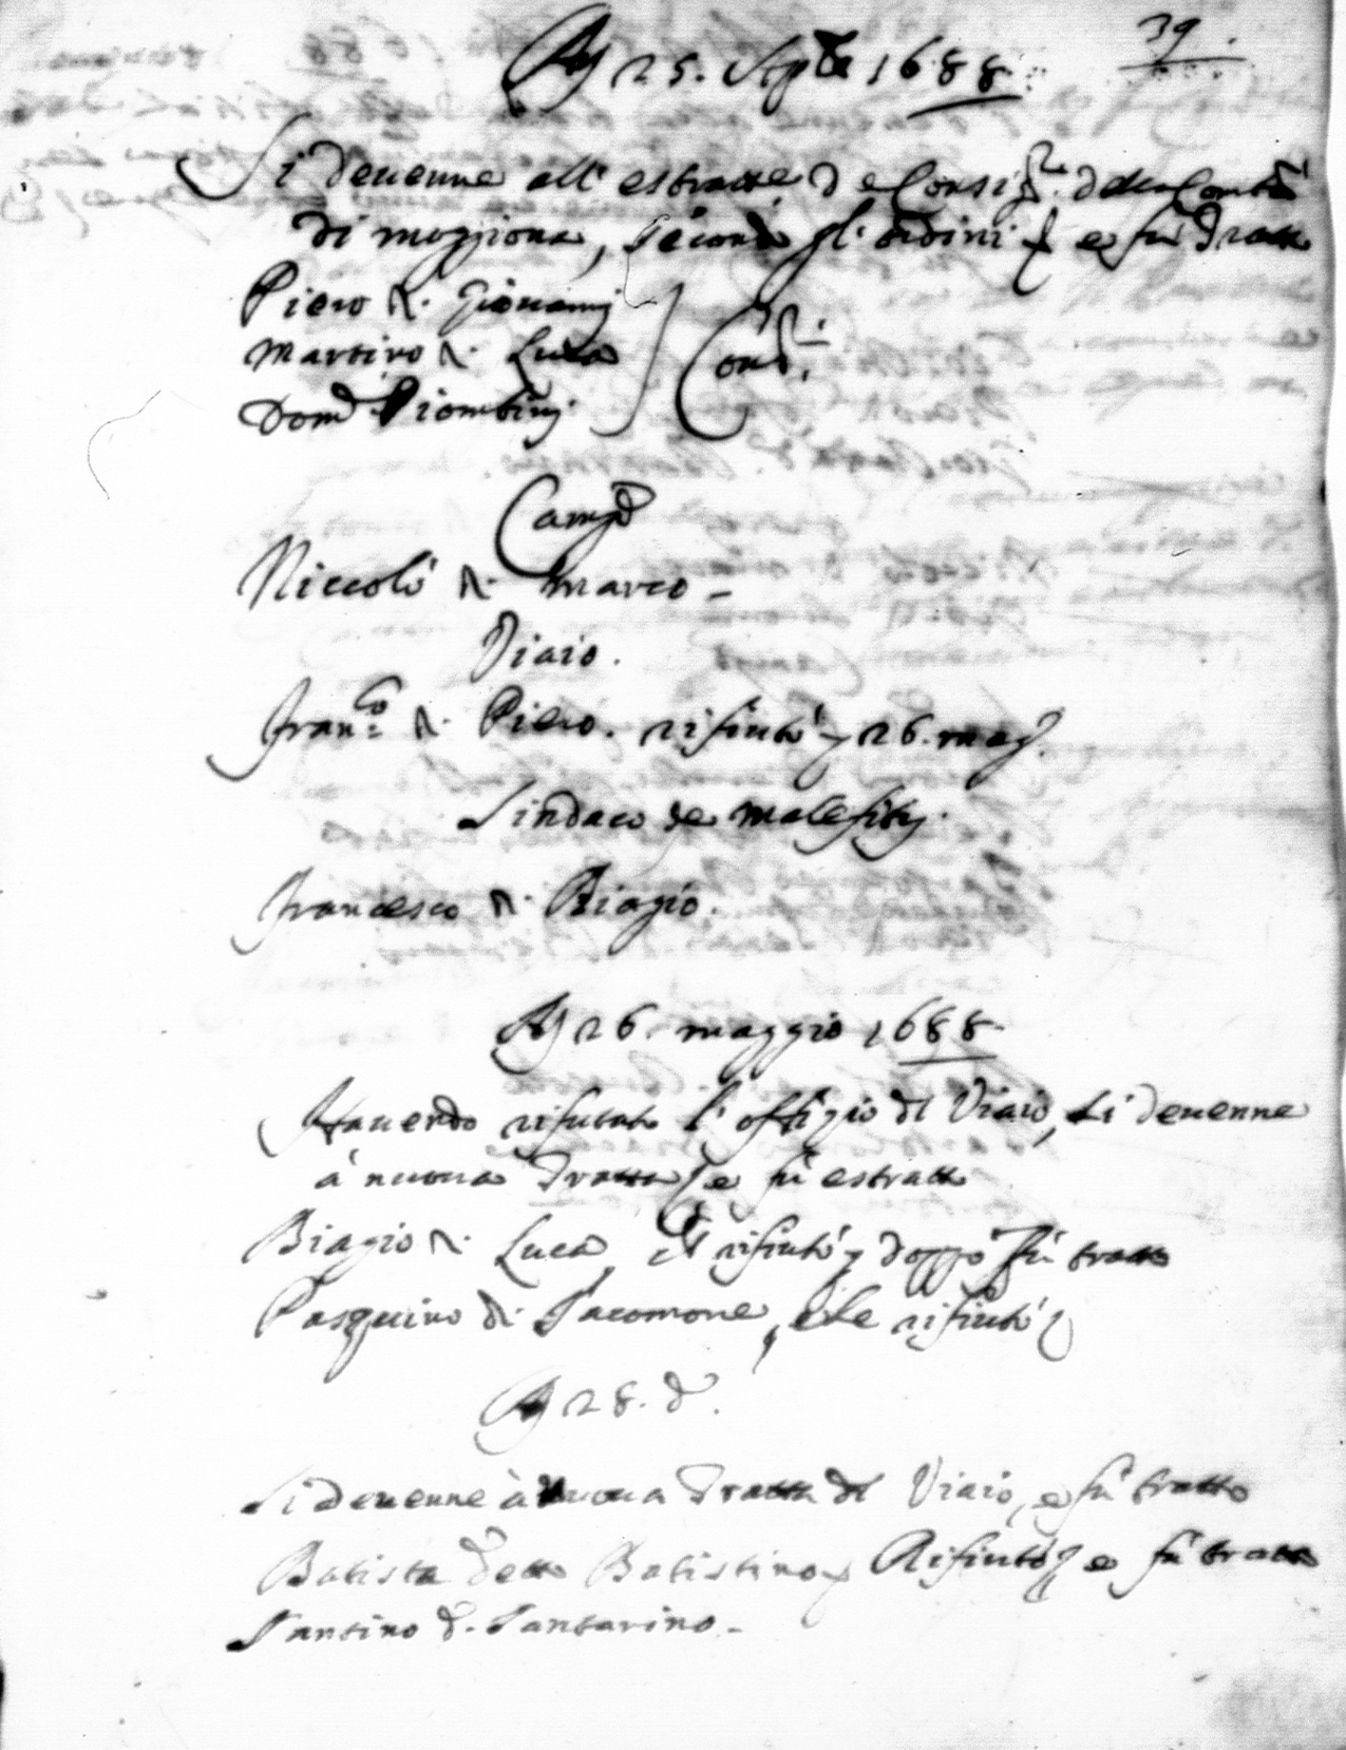 39
Adj 25. Aple 1688
Si deuenne all' estratte de Consigri. della Comtà
di moggiona, secondo gl' ordini & e fù tratto
Piero di Giouannj
Martino di Luca
Domco Piombinj
Consri.
Campo
Niccolò di Marco -
Viaio.
Franco. di Piero. rifiutò 26. magg.
Sindaco de malefitij.
Francesco di Biagio.
Adj 26. maggio 1688.
Hauendo rifiutato l' offizio del Viaio, si deuenne
à nuoua tratta, e fù estratto
Biagio di Luca, et rifiutò doppo fù tratto
Pasquino di Jacomone, che rifiutò
Adj 28. do.
Si deuenne à nuoua tratta del Viaio, e fù tratto
Batista detto Batistino Rifiutò e fù tratto
Santino di Santarino -